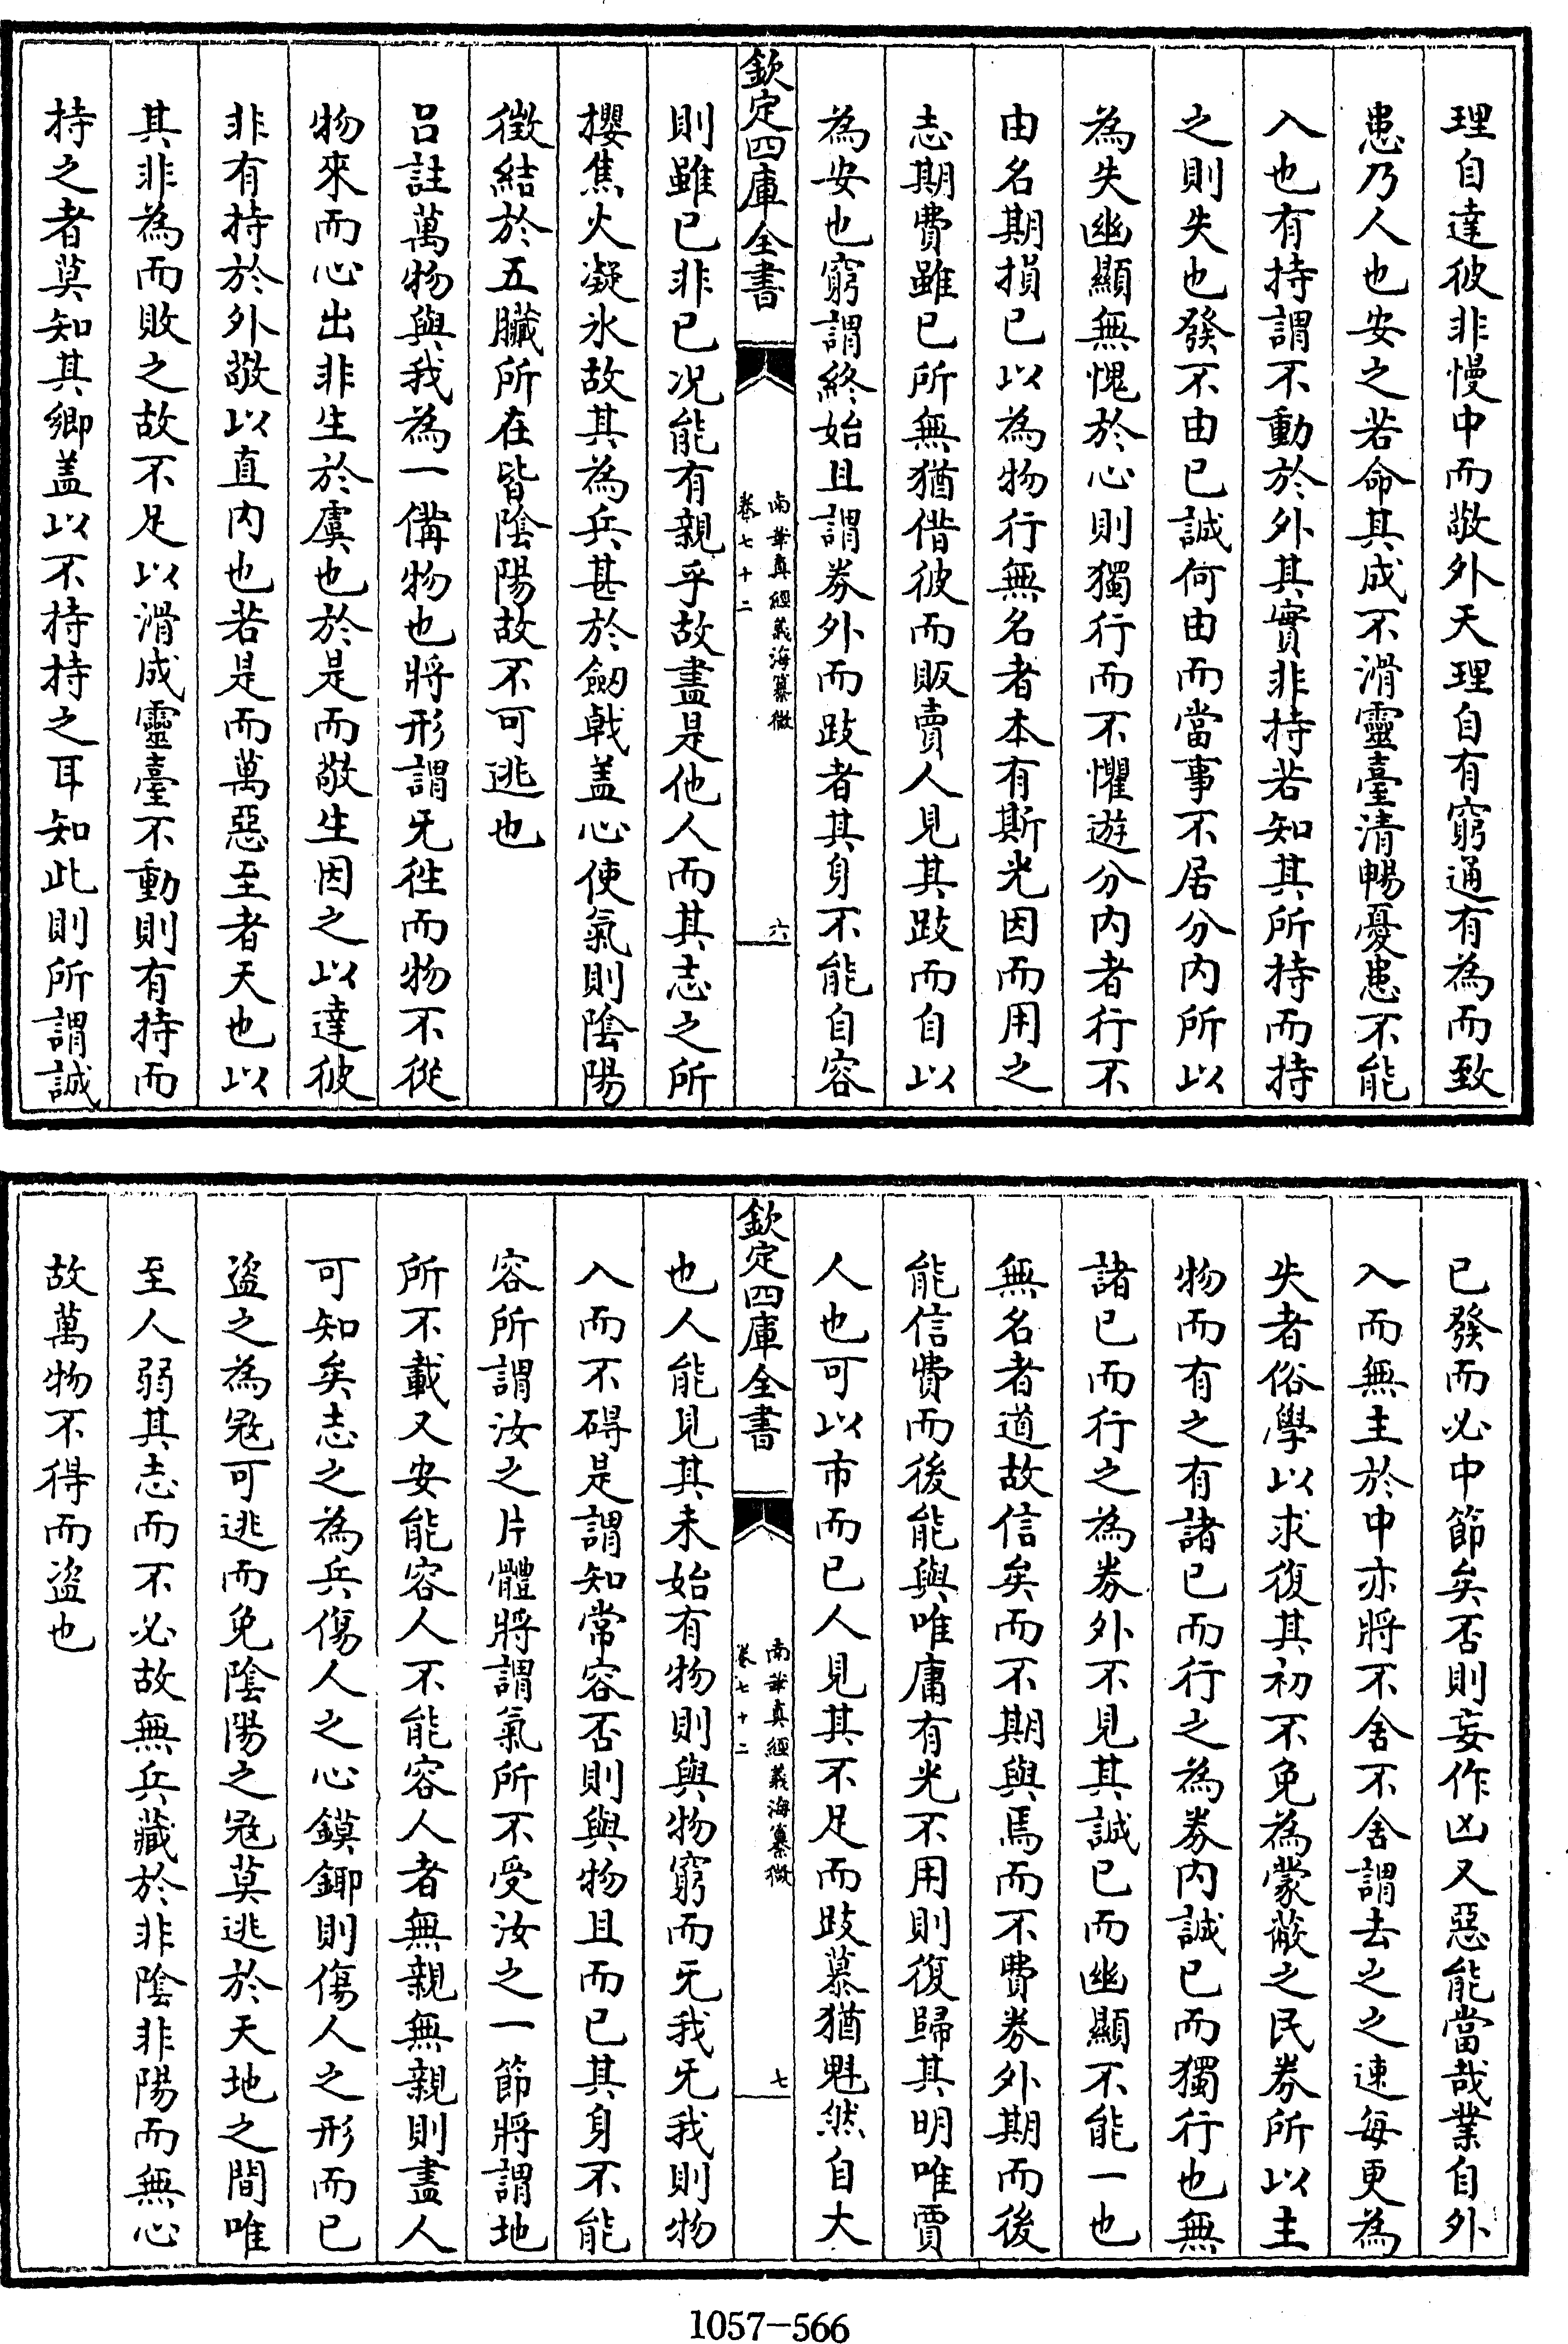 理自達彼非慢中而敬外天理自有窮通有為而致
患乃人也安之若命其成不滑靈臺清暢憂患不能
入也有持謂不動於外其實非持若知其所持而持
之則失也發不由已誠何由而當事不居分内所以
為失幽顯無愧於心則獨行而不懼遊分内者行不
由名期損已以為物行無名者本有斯光因而用之
志期費雖已所無猶借彼而販賣人見其跂而自以
為安也窮謂終始且謂券外而跂者其身不能自容
欽定四庫全書
南華真經義海纂微
卷七十二
六
則雖已非已况能有親乎故盡是他人而其志之所
攖焦火凝氷故其為兵甚於劒㦸盖心使氣則陰陽
徵結於五臟所在皆陰陽故不可逃也
吕註萬物與我為一備物也將形謂旡徃而物不從
物來而心出非生於虞也於是而敬生因之以達彼
非有持於外敬以直内也若是而萬惡至者天也以
其非為而敗之故不足以滑成靈臺不動則有持而
持之者莫知其鄉盖以不持持之耳知此則所謂誠
已發而必中節矣否則妄作凶又惡能當哉業自外
入而無主於中亦將不舍不舍謂去之之速每更為
失者俗學以求復其初不免為蒙蔽之民券所以主
物而有之有諸已而行之為券内誠已而獨行也無
諸已而行之為券外不見其誠已而幽顯不能一也
無名者道故信矣而不期與焉而不費券外期而後
能信費而後能與唯庸有光不用則復歸其明唯賈
人也可以市而已人見其不足而跂慕猶魁然自大
欽定四庫全書
南華真經義海纂微
卷七十二
七
也人能見其未始有物則與物窮而旡我旡我則物
入而不碍是謂知常容否則與物且而已其身不能
容所謂汝之片體將謂氣所不受汝之一節將謂地
所不載又安能容人不能容人者無親無親則盡人
可知矣志之為兵傷人之心鏌鋣則傷人之形而已
盗之為冦可逃而免陰陽之冦莫逃於天地之間唯
至人弱其志而不必故無兵藏於非陰非陽而無心
故萬物不得而盗也
1057-566